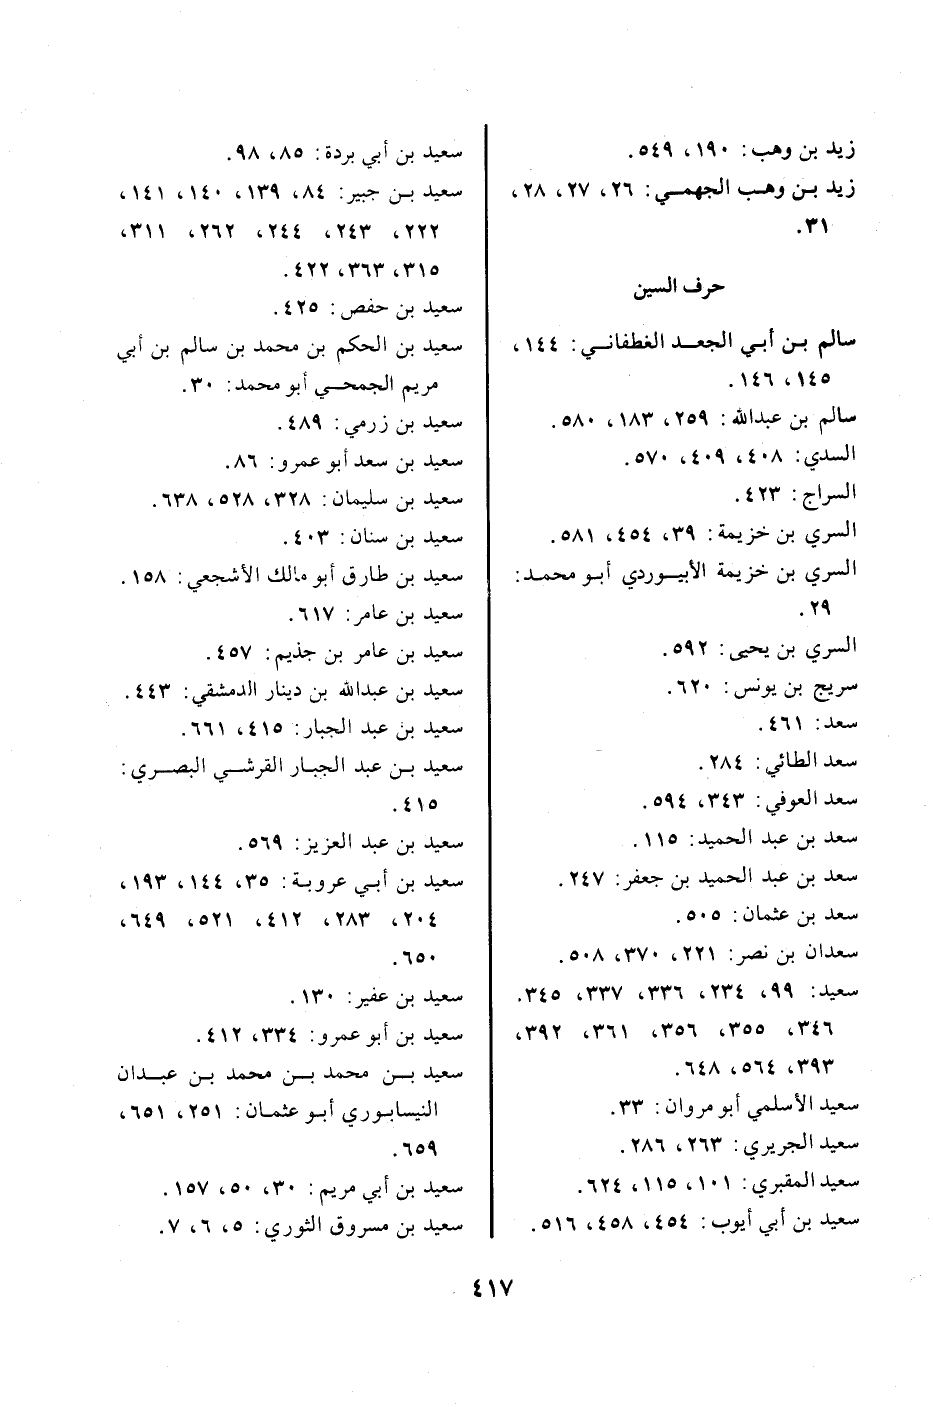 زيد بن وهب: ١٩٠، ٥٤٩.
زيد بن وهب الجهمي: ٢٦، ٢٧، ٢٨،
٣١.
حرف السين
سالم بن أبي الجعد الغطفاني: ١٤٤،
١٤٥، ١٤٦.
سالم بن عبدالله: ٢٥٩، ١٨٣، ٥٨٠.
السدي: ٤٠٨، ٤٠٩، ٥٧٠.
السراج: ٤٢٣.
السري بن خزيمة: ٣٩، ٤٥٤، ٥٨١.
السري بن خزيمة الأبيوردي أبو محمد:
٢٩.
السري بن يحيى: ٥٩٢.
سريج بن يونس: ٦٢٠.
سعد: ٤٦١.
سعد الطائي: ٢٨٤.
سعد العوفي: ٣٤٣، ٥٩٤.
سعد بن عبد الحميد: ١١٥.
سعد بن عبد الحميد بن جعفر: ٢٤٧.
سعد بن عثمان: ٥٠٥.
سعدان بن نصر: ٢٢١، ٣٧٠، ٥٠٨.
سعيد: ٩٩، ٢٣٤، ٣٣٦، ٣٣٧، ٣٤٥.
٣٤٦، ٣٥٥، ٣٥٦، ٣٦١، ٣٩٢،
٣٩٣، ٥٦٤، ٦٤٨.
سعيد الأسلمي أبو مروان: ٣٣.
سعيد الجريري: ٢٦٣، ٢٨٦.
سعيد المقبري: ١٠١، ١١٥، ٦٢٤.
سعيد بن أبي أيوب: ٤٥٤، ٤٥٨، ٥١٦.
سعيد بن أبي بردة: ٨٥، ٩٨.
سعيد بن جبير: ٨٤، ١٣٩، ١٤٠، ١٤١،
٢٢٢، ٢٤٣، ٢٤٤، ٢٦٢، ٣١١،
٣١٥، ٣٦٣، ٤٢٢.
سعيد بن حفص: ٤٢٥.
سعيد بن الحكم بن محمد بن سالم بن أبي
مريم الجمحي أبو محمد: ٣٠.
سعيد بن زرمي: ٤٨٩.
سعيد بن سعد أبو عمرو: ٨٦.
سعيد بن سليمان: ٣٢٨، ٥٢٨، ٦٣٨.
سعيد بن سنان: ٤٠٣.
سعيد بن طارق أبو مالك الأشجعي: ١٥٨.
سعيد بن عامر: ٦١٧.
سعيد بن عامر بن جذيم: ٤٥٧.
سعيد بن عبدالله بن دينار الدمشقي: ٤٤٣.
سعيد بن عبد الجبار: ٤١٥، ٦٦١.
سعيد بن عبد الجبار القرشي البصري:
٤١٥.
سعيد بن عبد العزيز: ٥٦٩.
سعيد بن أبي عروبة: ٣٥، ١٤٤، ١٩٣،
٢٠٤، ٢٨٣، ٤١٢، ٥٢١، ٦٤٩،
٦٥٠.
سعيد بن عفير: ١٣٠.
سعيد بن أبو عمرو: ٣٣٤، ٤١٢.
سعيد بن محمد بن محمد بن عبدان
النيسابوري أبو عثمان: ٢٥١، ٦٥١،
٦٥٩.
سعيد بن أبي مريم: ٣٠، ٥٠، ١٥٧.
سعيد بن مسروق الثوري: ٥، ٦، ٧.
٤١٧